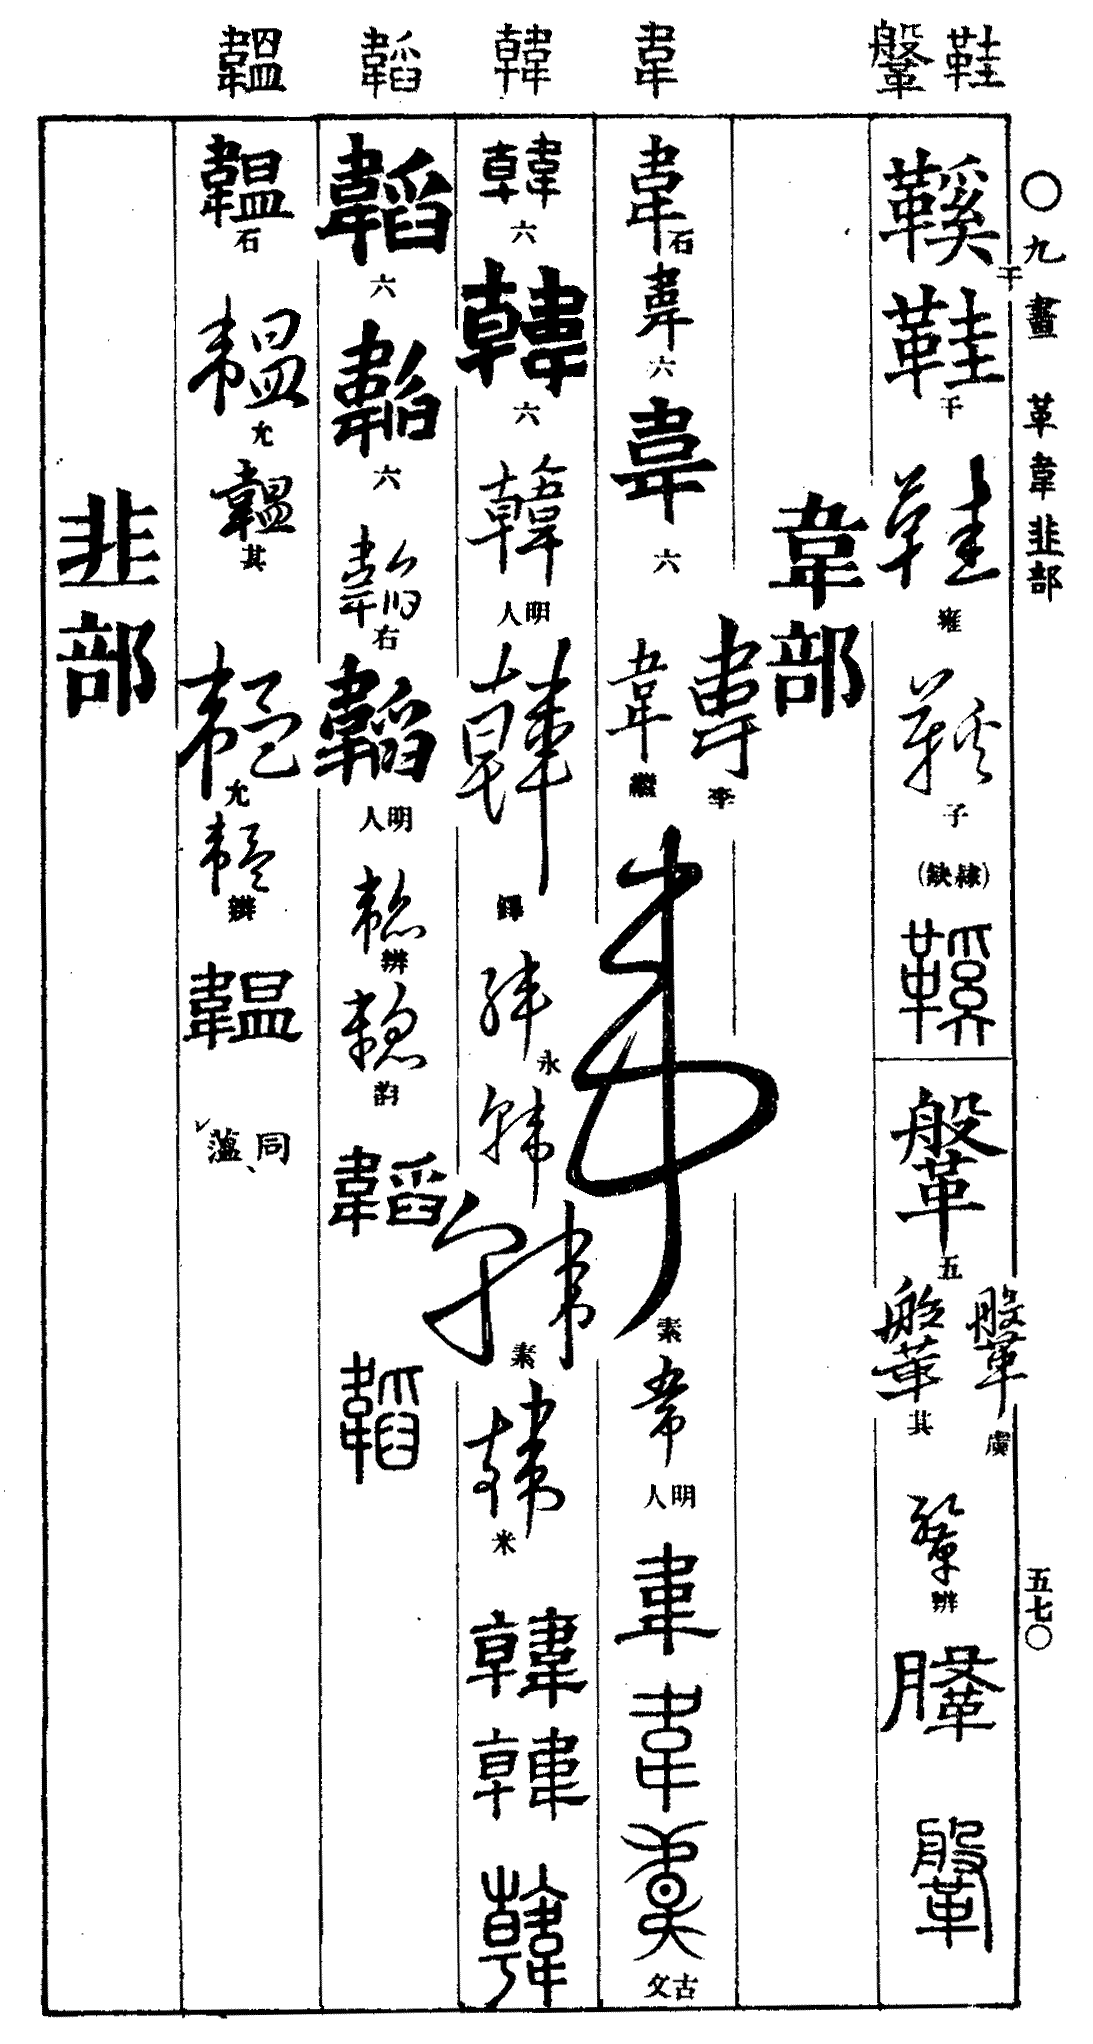 〇九畫 革韋韭部 五七〇
鞋 鞶
韋
韓
韜
韞
鞵 干 鞋 干 鞋 雍 鞵 子 (隸缺) 鞵
鞶 五 鞶 虞 鞶 其 鞶 辨 鞶 鞶
韋部
韋 石 韋 六 韋 六 韋 李 韋 繼 韋 素 韋 明人 韋 韋 韋 古文
韓 六 韓 六 韓 明人 韓 鐸 韓 永 韓 韓 素 韓 米 韓 韓 韓
韜 六 韜 六 韜 右 韜 明人 韜 辨 韜 韵 韜 韜
韞 石 韞 允 韞 其 韞 允 韞 辨 韞 同薀
韭部